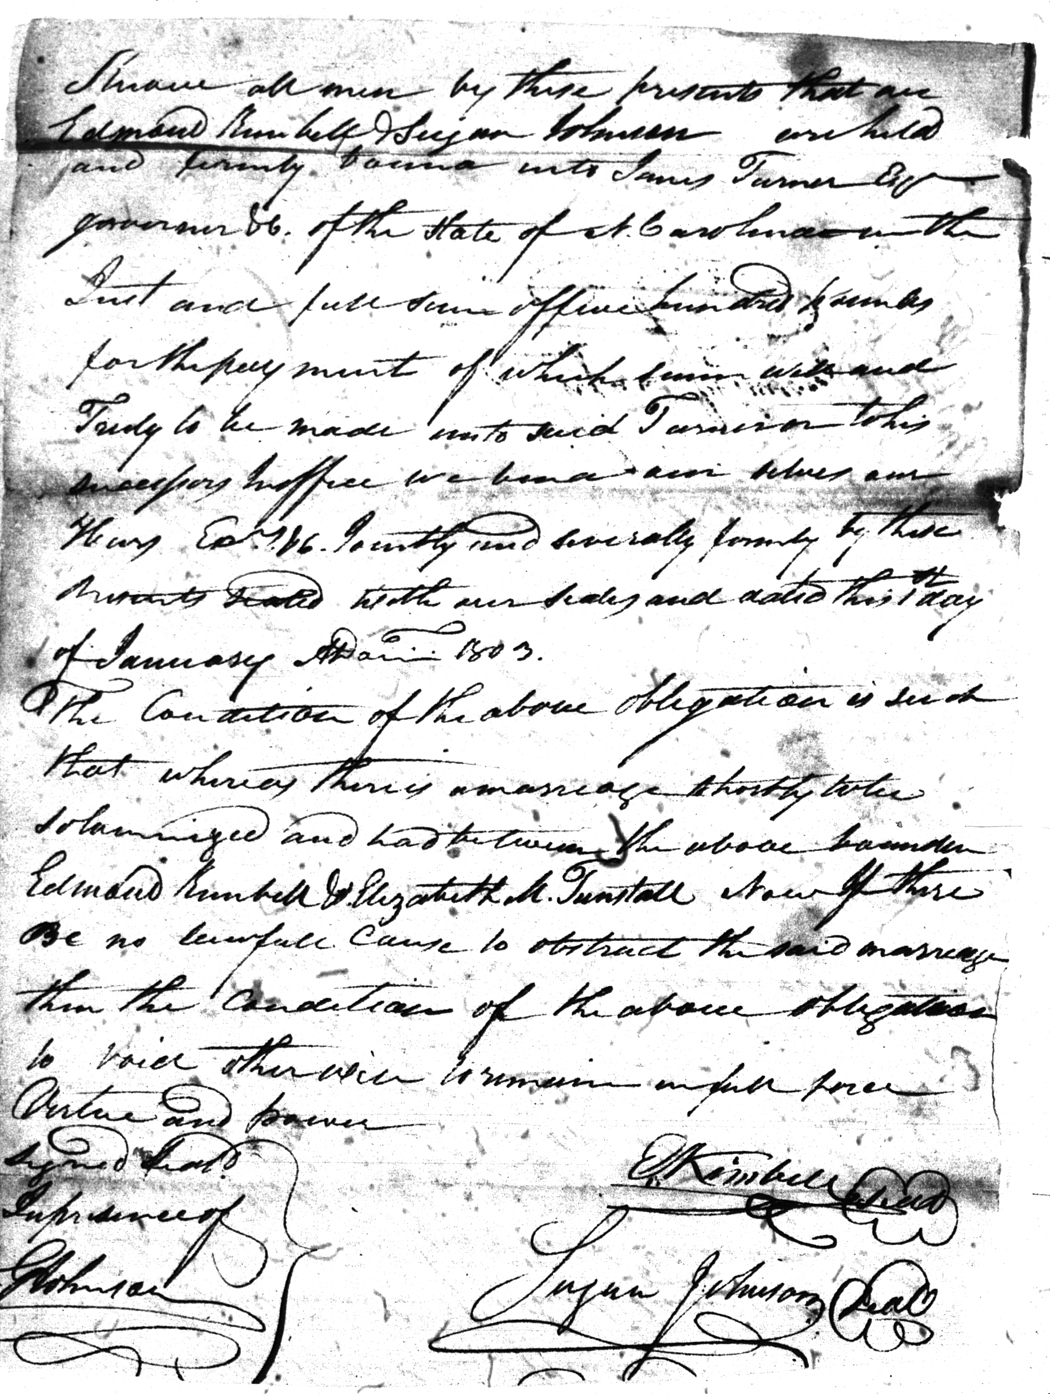 Know all men by these presents that we
Edmond Kimbell & Sugan Johnson are held
and firmly bound unto James Turner Esqr
governor &c. of the State of N. Carolina in the
Just and full sum of five hundred pounds
for the payment of which sum well and
Truly to be made unto said Turner or to his
successors In office we bind our selves our
Heirs Exrs. &c. Jointly and severally firmly by these
Presents sealed with our seales and dated this 1st day
of January 1803.
The Condition of the above obligation is such
that whereas there is a marriage shortly to be
solemnized and had between the above bounden
Edmond Kimbell & Elizabeth M. Tunstall Now If there
Be no lawfull Cause to obstruct the said marriage
then the Condition of the above obligation
to void otherwise to remain in full force
Virtue and power
signed Seald
In presence of
E. Kimbell Seal
GJohnson
Sugan Johnson Seal